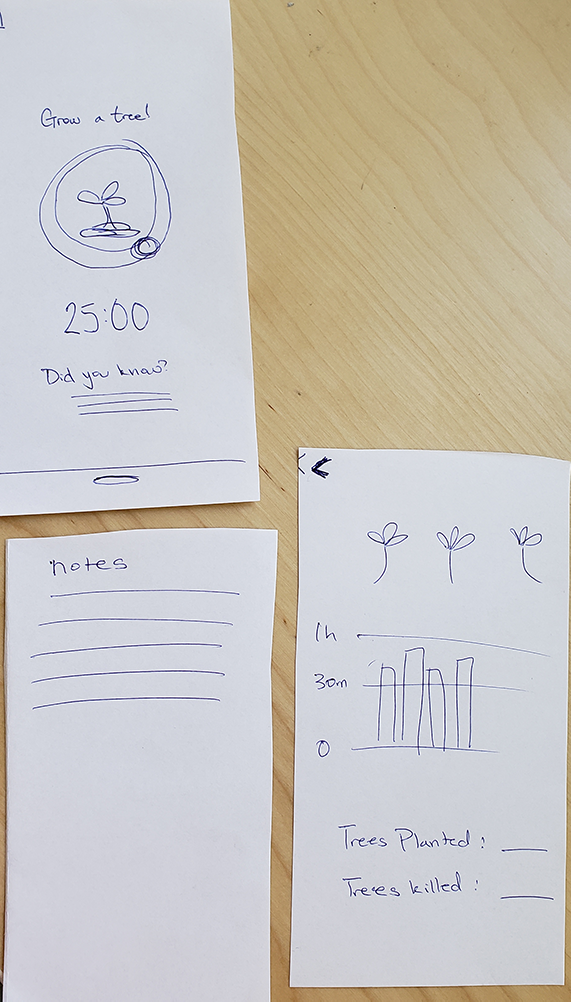 Grow a tree!
25:00
Did you know?
notes
<
1h
30m
0
Trees Planted :
Treees killed :